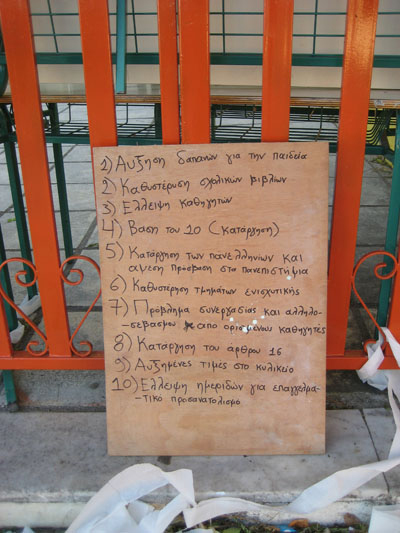 1) Αυξηση δαπανών για την παιδεία
2) Καθυστέρυση σχολικών βιβλίων
3) Ελλειψη καθηγητών
4) Βαση του 10 (κατάργηση)
5) Κατάργηση των πανελληνίων και
αμεση πρόσβαση στα πανεπιστήμια
6) Καθυστέρηση τμημάτων ενισχυτικής
7) Πρόβλημα συνεργασίας και αλληλο-
-σεβασμου από ορισμένους καθηγητές
8) Καταργηση του άρθρου 16
9) Αυξημένες τιμές στο κυλικείο
10) Ελλειψη ημερίδων για επαγγελμα-
-τικο προσανατολισμο